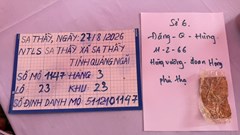 SA THẦY, NGÀY: 27/8/2026
NTLS SA THẦY XÃ SA THẦY
TỈNH QUẢNG NGÃI
SỐ MỘ 1147 HÀNG 3
LÔ 23 KHU 23
SỐ ĐỊNH DANH MỘ 5112101147
Số 6.
11-2-66
phú thọ